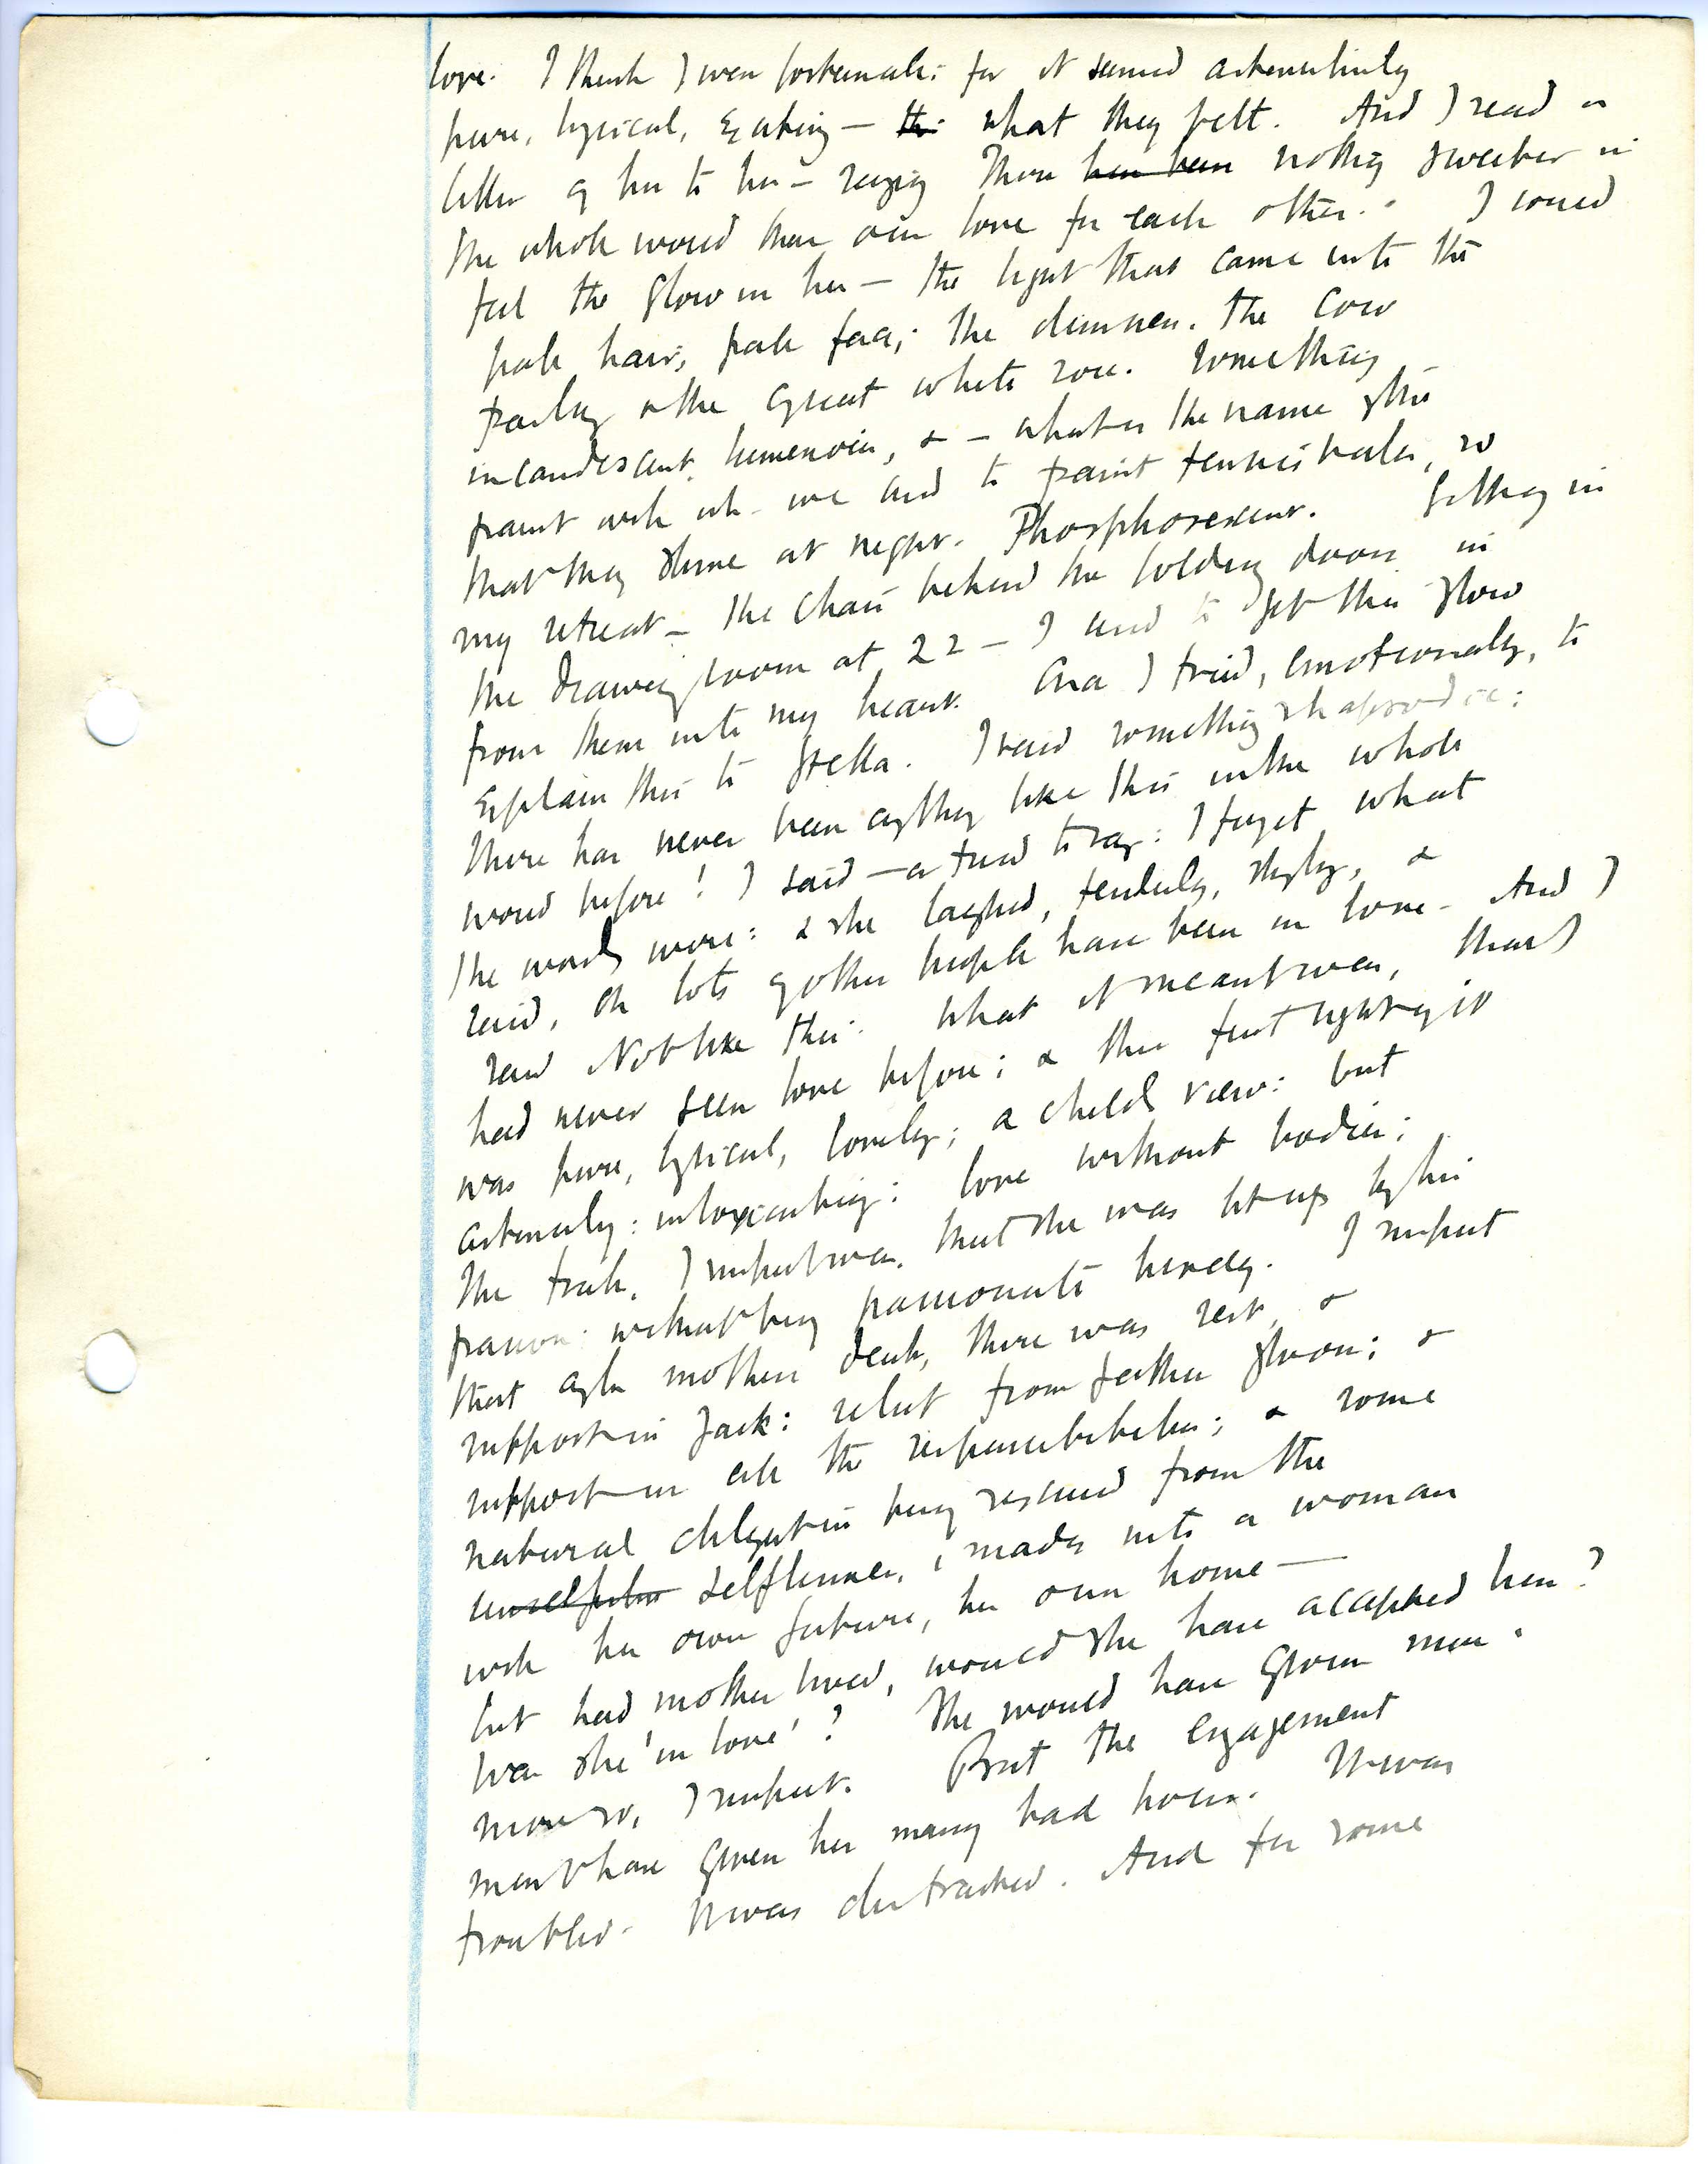 love. I think I was fortunate: for it seemed astonishingly
pure, lyrical, exciting — what they felt. And I read a
letter of his to her — saying There has been nothing sweeter in
the whole world than our love for each other. I could
feel the glow in her — the light that came into the
pale hair, pale face; the dimness. The cow
parsley & the great white rose. Something
incandescent, luminous, & — what is the name of the
paint with wh. we used to paint tennis balls, so
that they shine at night. Phosphorescent. Sitting in
my retreat — the chair behind the folding doors in
the drawing room at 22 — I used to get this glow
from them into my heart. And I tried, emotionally, to
explain this to Stella. I said something rhapsodic:
There has never been anything like this in the whole
world before! I said — or tried to say: I forget what
the words were: & she laughed, tenderly, shyly, &
said, oh lots of other people have been in love. And I
said Not like this. What it meant was, that I
had never seen love before; & this first sight of it
was pure, lyrical, lovely; a child's view: but
: intoxicating: love without bodies:
The truth, I suspect was, that she was lit up by his
passion: without being passionate herself. I suspect
that after mother's death, there was rest, &
support in Jack: relief from father's gloom; &
support in all the responsibilities; & some
natural in being rescued from the
unselfishness selflessness, made into a woman
with her own future, her own home —
but had mother lived, would she have accepted him?
Was she 'in love'? She would have given more.
more so, I suspect. But the engagement
must have given her many bad hours. It was
troubled. It was distracted. And for some